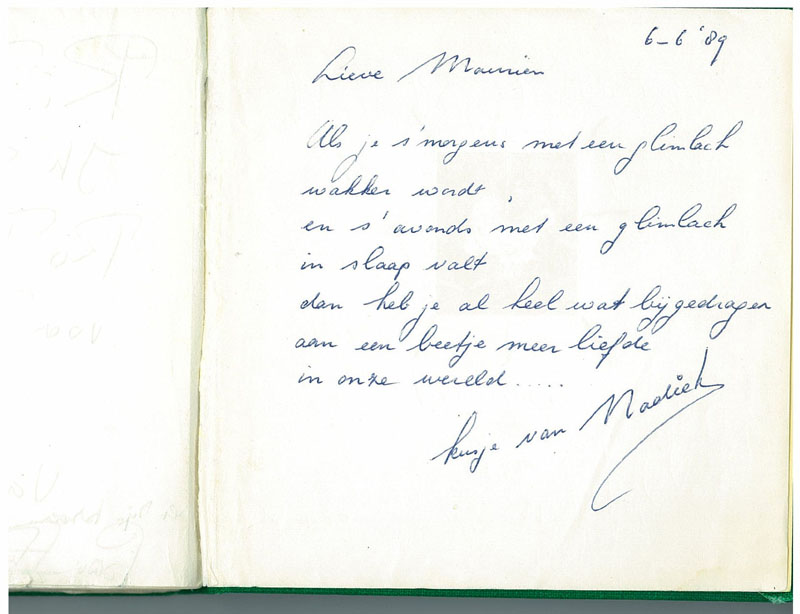 6-6 '89
Lieve
Als je s'morgens met een glimlach
wakker wordt
en s'avonds met een glimlach
in slaap valt
dan heb je al heel wat bijgedragen
aan een beetje meer liefde
in onze wereld.....
kusje van